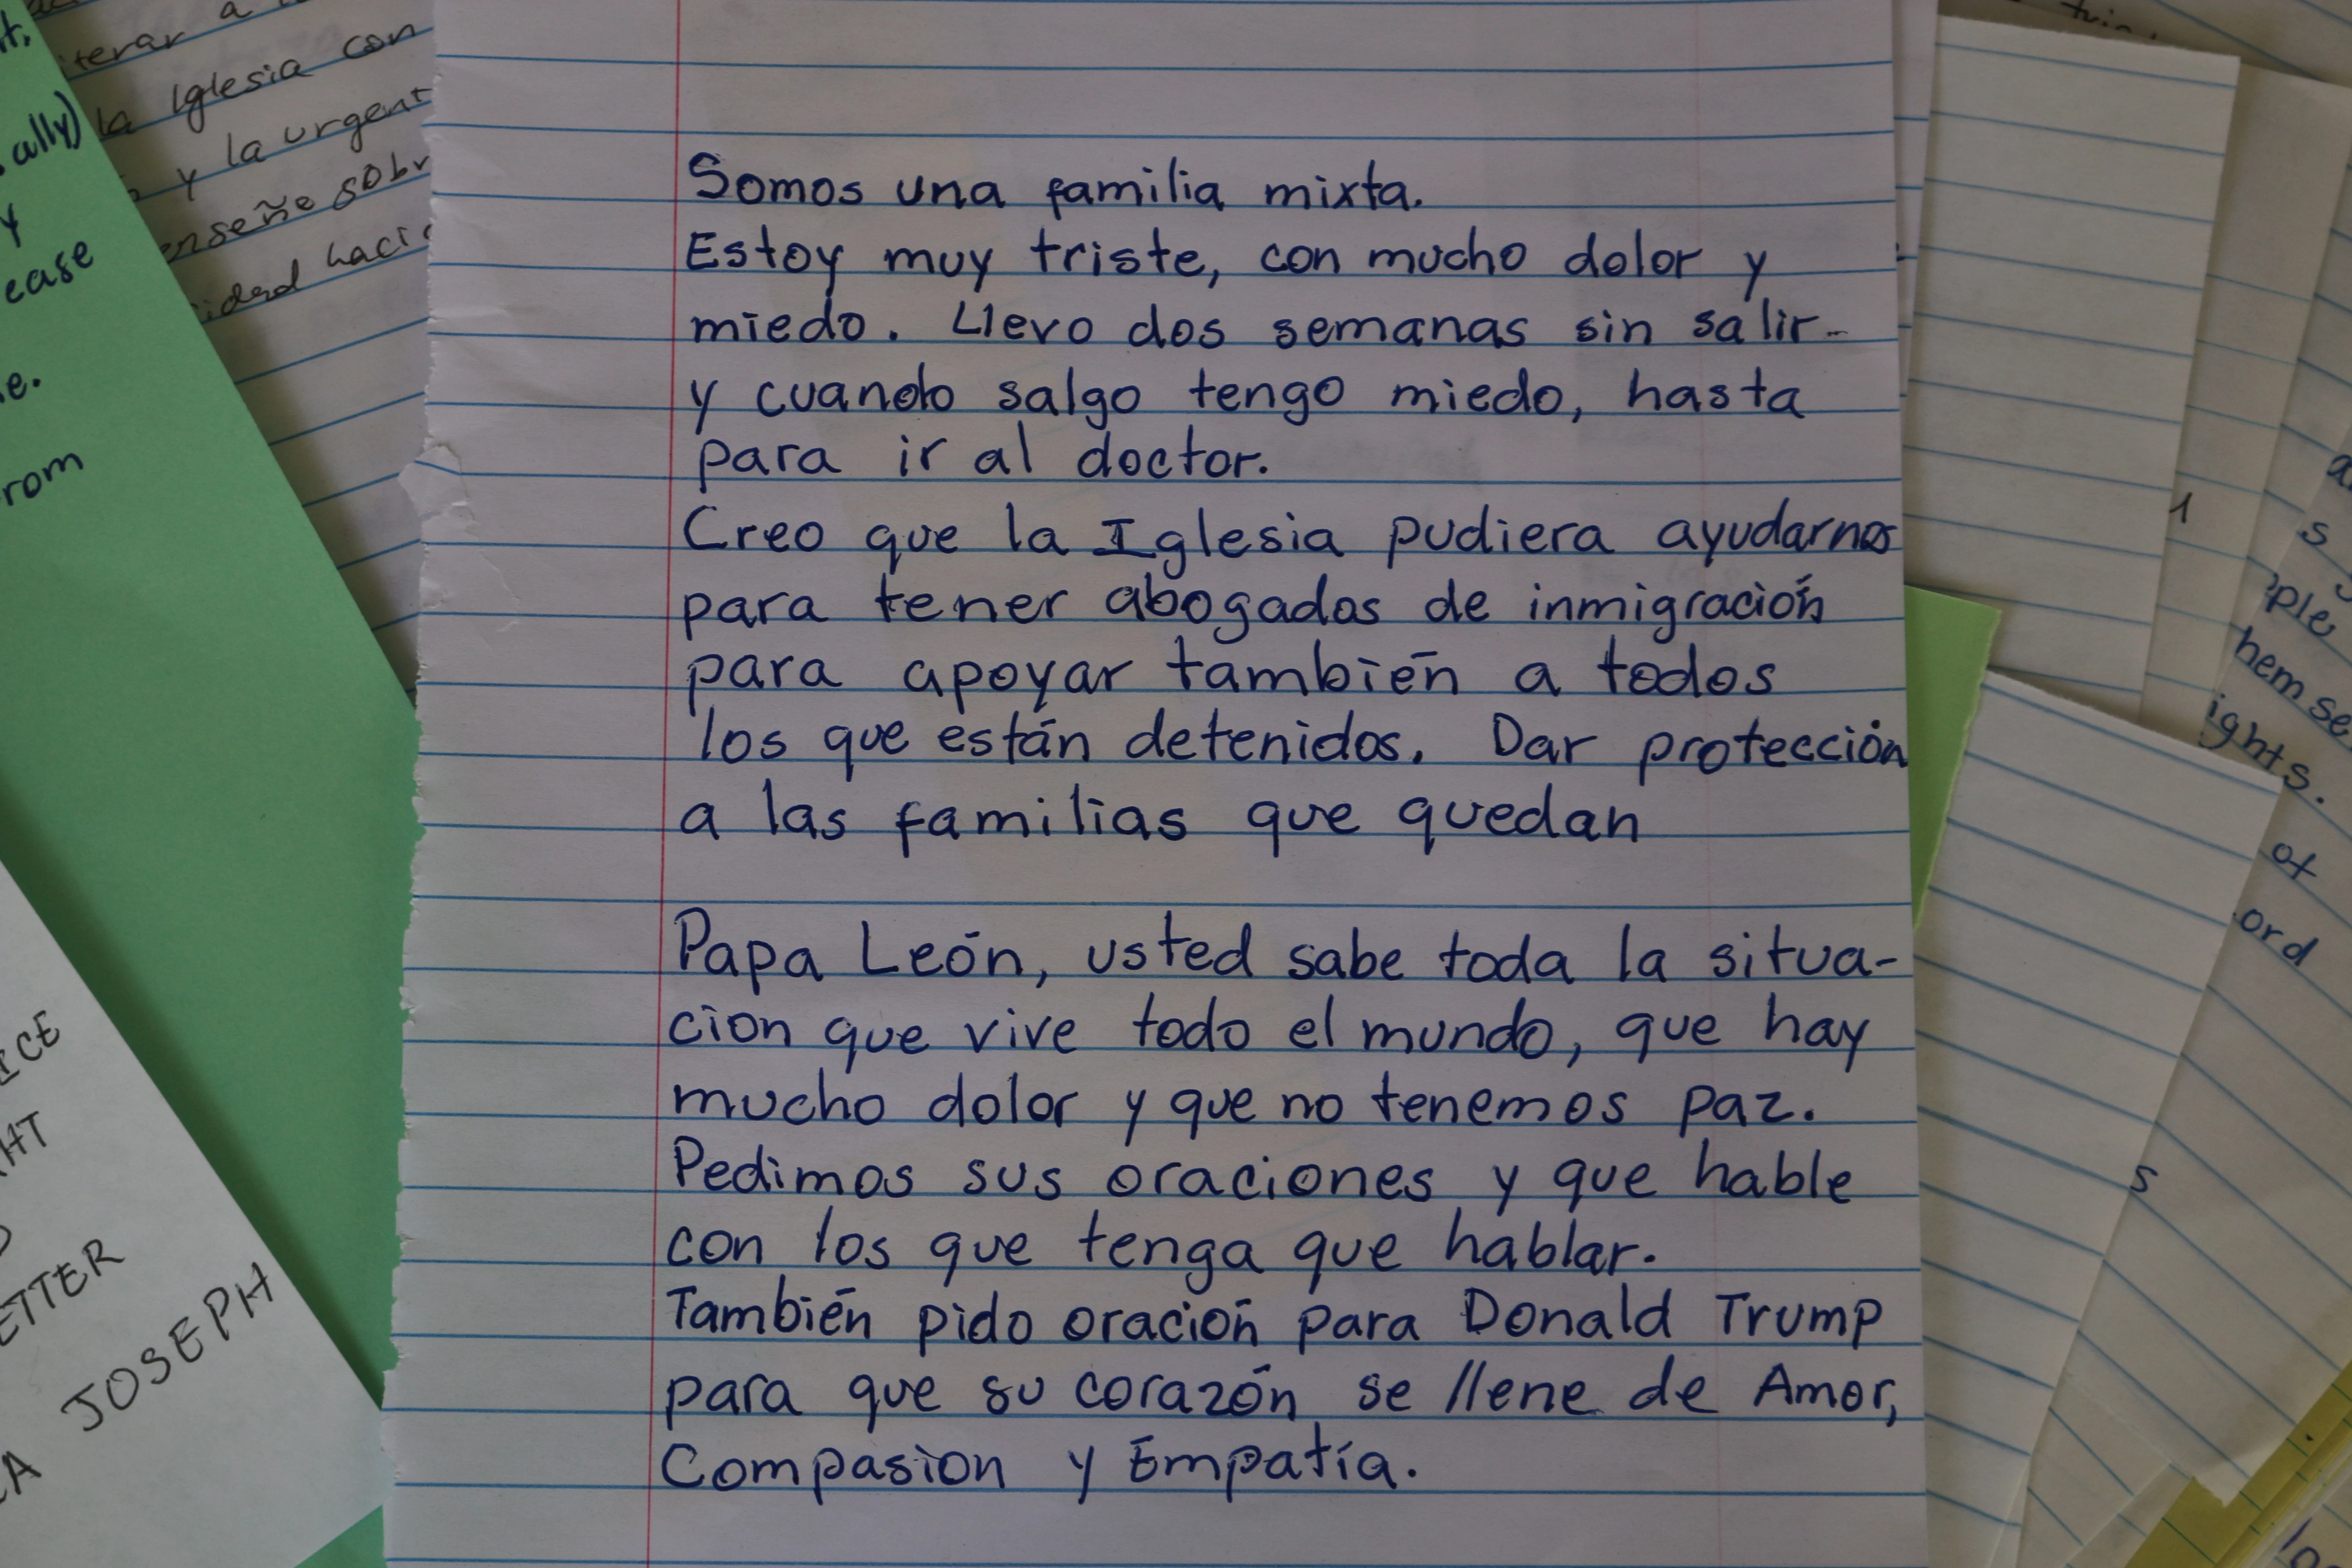 a
la Iglesia con
y la urgent
enseñe sobr
haci
ally)
y
ease
e.
rom
Somos una familia mixta.
Estoy muy triste, con mucho dolor y
miedo. Llevo dos semanas sin salir-
y cuando salgo tengo miedo, hasta
para ir al doctor.
Creo que la Iglesia pudiera ayudarnos
para tener abogados de inmigración
para apoyar también a todos
los que están detenidos. Dar protección
a las familias que quedan
Papa León, usted sabe toda la situa-
cion que vive todo el mundo, que hay
mucho dolor y que no tenemos paz.
Pedimos sus oraciones y que hable
con los que tenga que hablar.
También pido oración para Donald Trump
para que su corazón se llene de Amor,
Compasion y Empatía.
ICE
HT
ETTER
JOSEPH
A
s
ple
hem se
ights.
of
ord
s